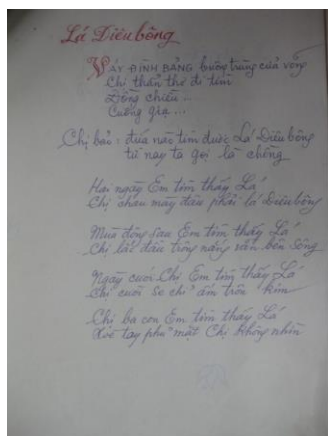 Lá Diêu bông
VÁY ĐÌNH BẢNG buông trùng cửa võng
Chị thẩn thơ đi tìm
Đồng chiều ...
Cuống rạ ...
Chị bảo: đứa nào tìm được Lá Diêu bông
từ nay ta gọi là chồng
Hai ngày Em tìm thấy Lá
Chị chau mày đâu phải Lá Diêu bông
Mùa đông sau Em tìm thấy Lá
Chị lắc đầu trông nắng vãn bên sông
Ngày cưới Chị Em tìm thấy Lá
Chị cười xe chỉ ấm trôn kim
Chị ba con Em tìm thấy Lá
Xòe tay phủ mặt Chị không nhìn